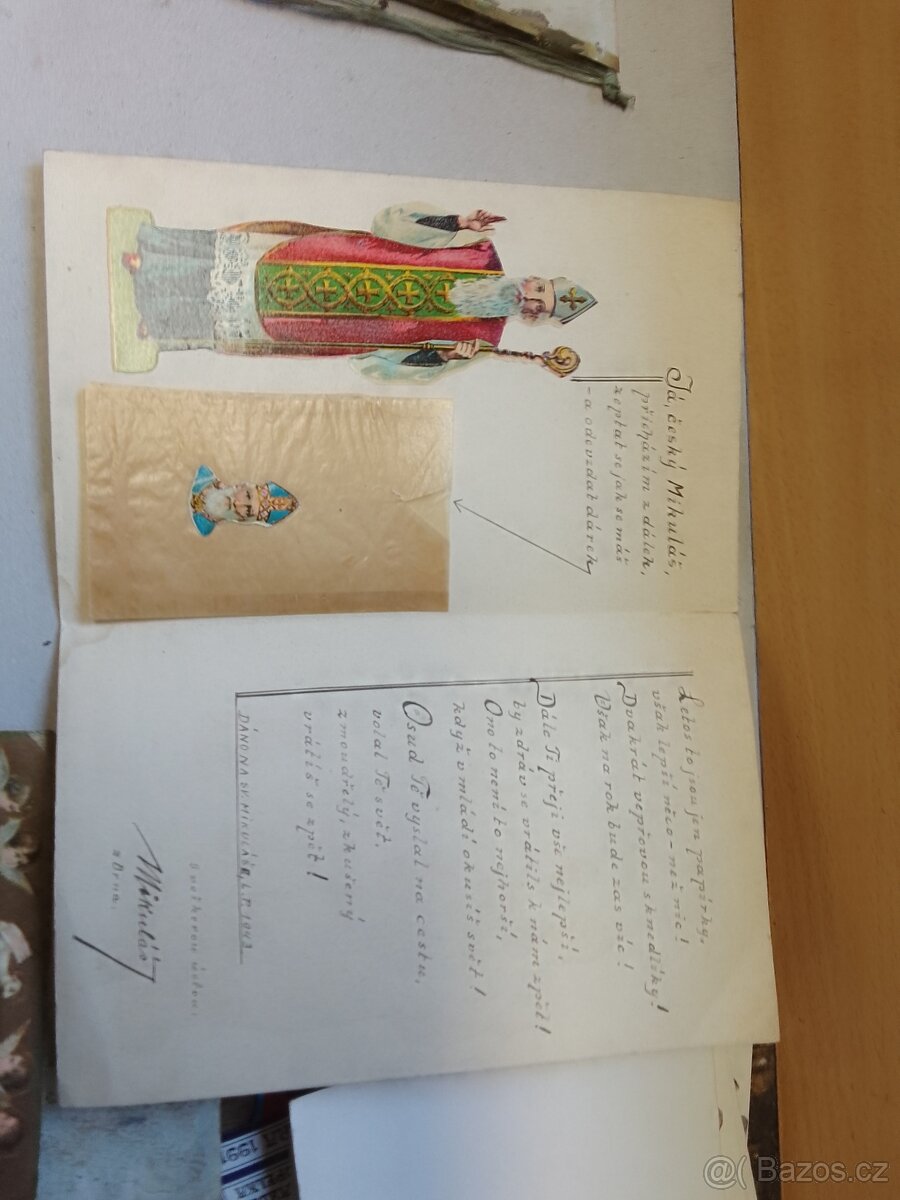 Já, český Mikuláš,
přicházím z dálek,
zeptat se jak se máš
- a odevzdat dárek
Letos to jsou jen papírky,
však lepší něco - než nic!
Dvakrát vepřovou s knedlíky!
Však na rok bude zas víc!
Dále Ti přeji vše nejlepší,
by zdráv se vrátils k nám zpět!
Ono to není to nejhorší,
když v mládí okusíš svět!
Osud Tě vyslal na cestu,
volal Tě svět,
zmoudřelý, zkušený
vrátíš se zpět!
DÁNO NA SV. MIKULÁŠE, L.P. 1942
S veškerou úctou
Mikuláš
z Brna.
1991
@( Bazos.cz